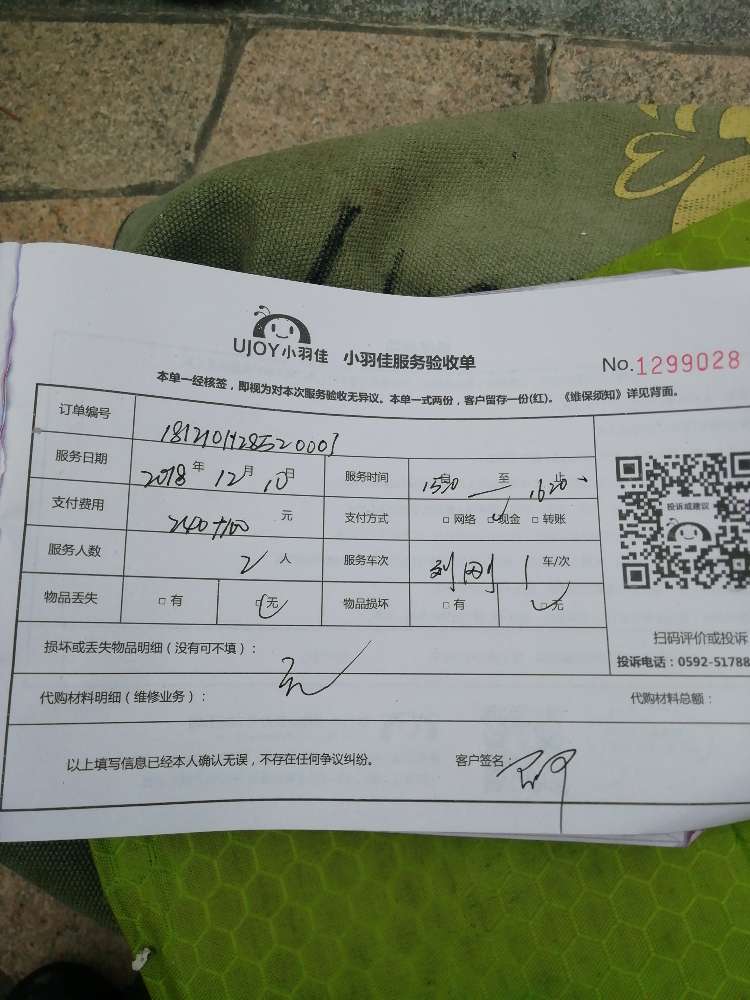 UJOY小羽佳 小羽佳服务验收单 No.1299028
本单一经核签，即视为对本次服务验收无异议。本单一式两份，客户留存一份(红)。《维保须知》详见背面。
订单编号
服务日期 2018年12月10日 服务时间 1530自 至 1620止
支付费用 240+100元 支付方式 □网络 □现金 □转账
服务人数 2人 服务车次 1车/次
物品丢失 □有 □无 物品损坏 □有 □无
投诉或建议
扫码评价或投诉
投诉电话：0592-51788
损坏或丢失物品明细（没有可不填）：无
代购材料明细（维修业务）： 代购材料总额：
以上填写信息已经本人确认无误，不存在任何争议纠纷。 客户签名：